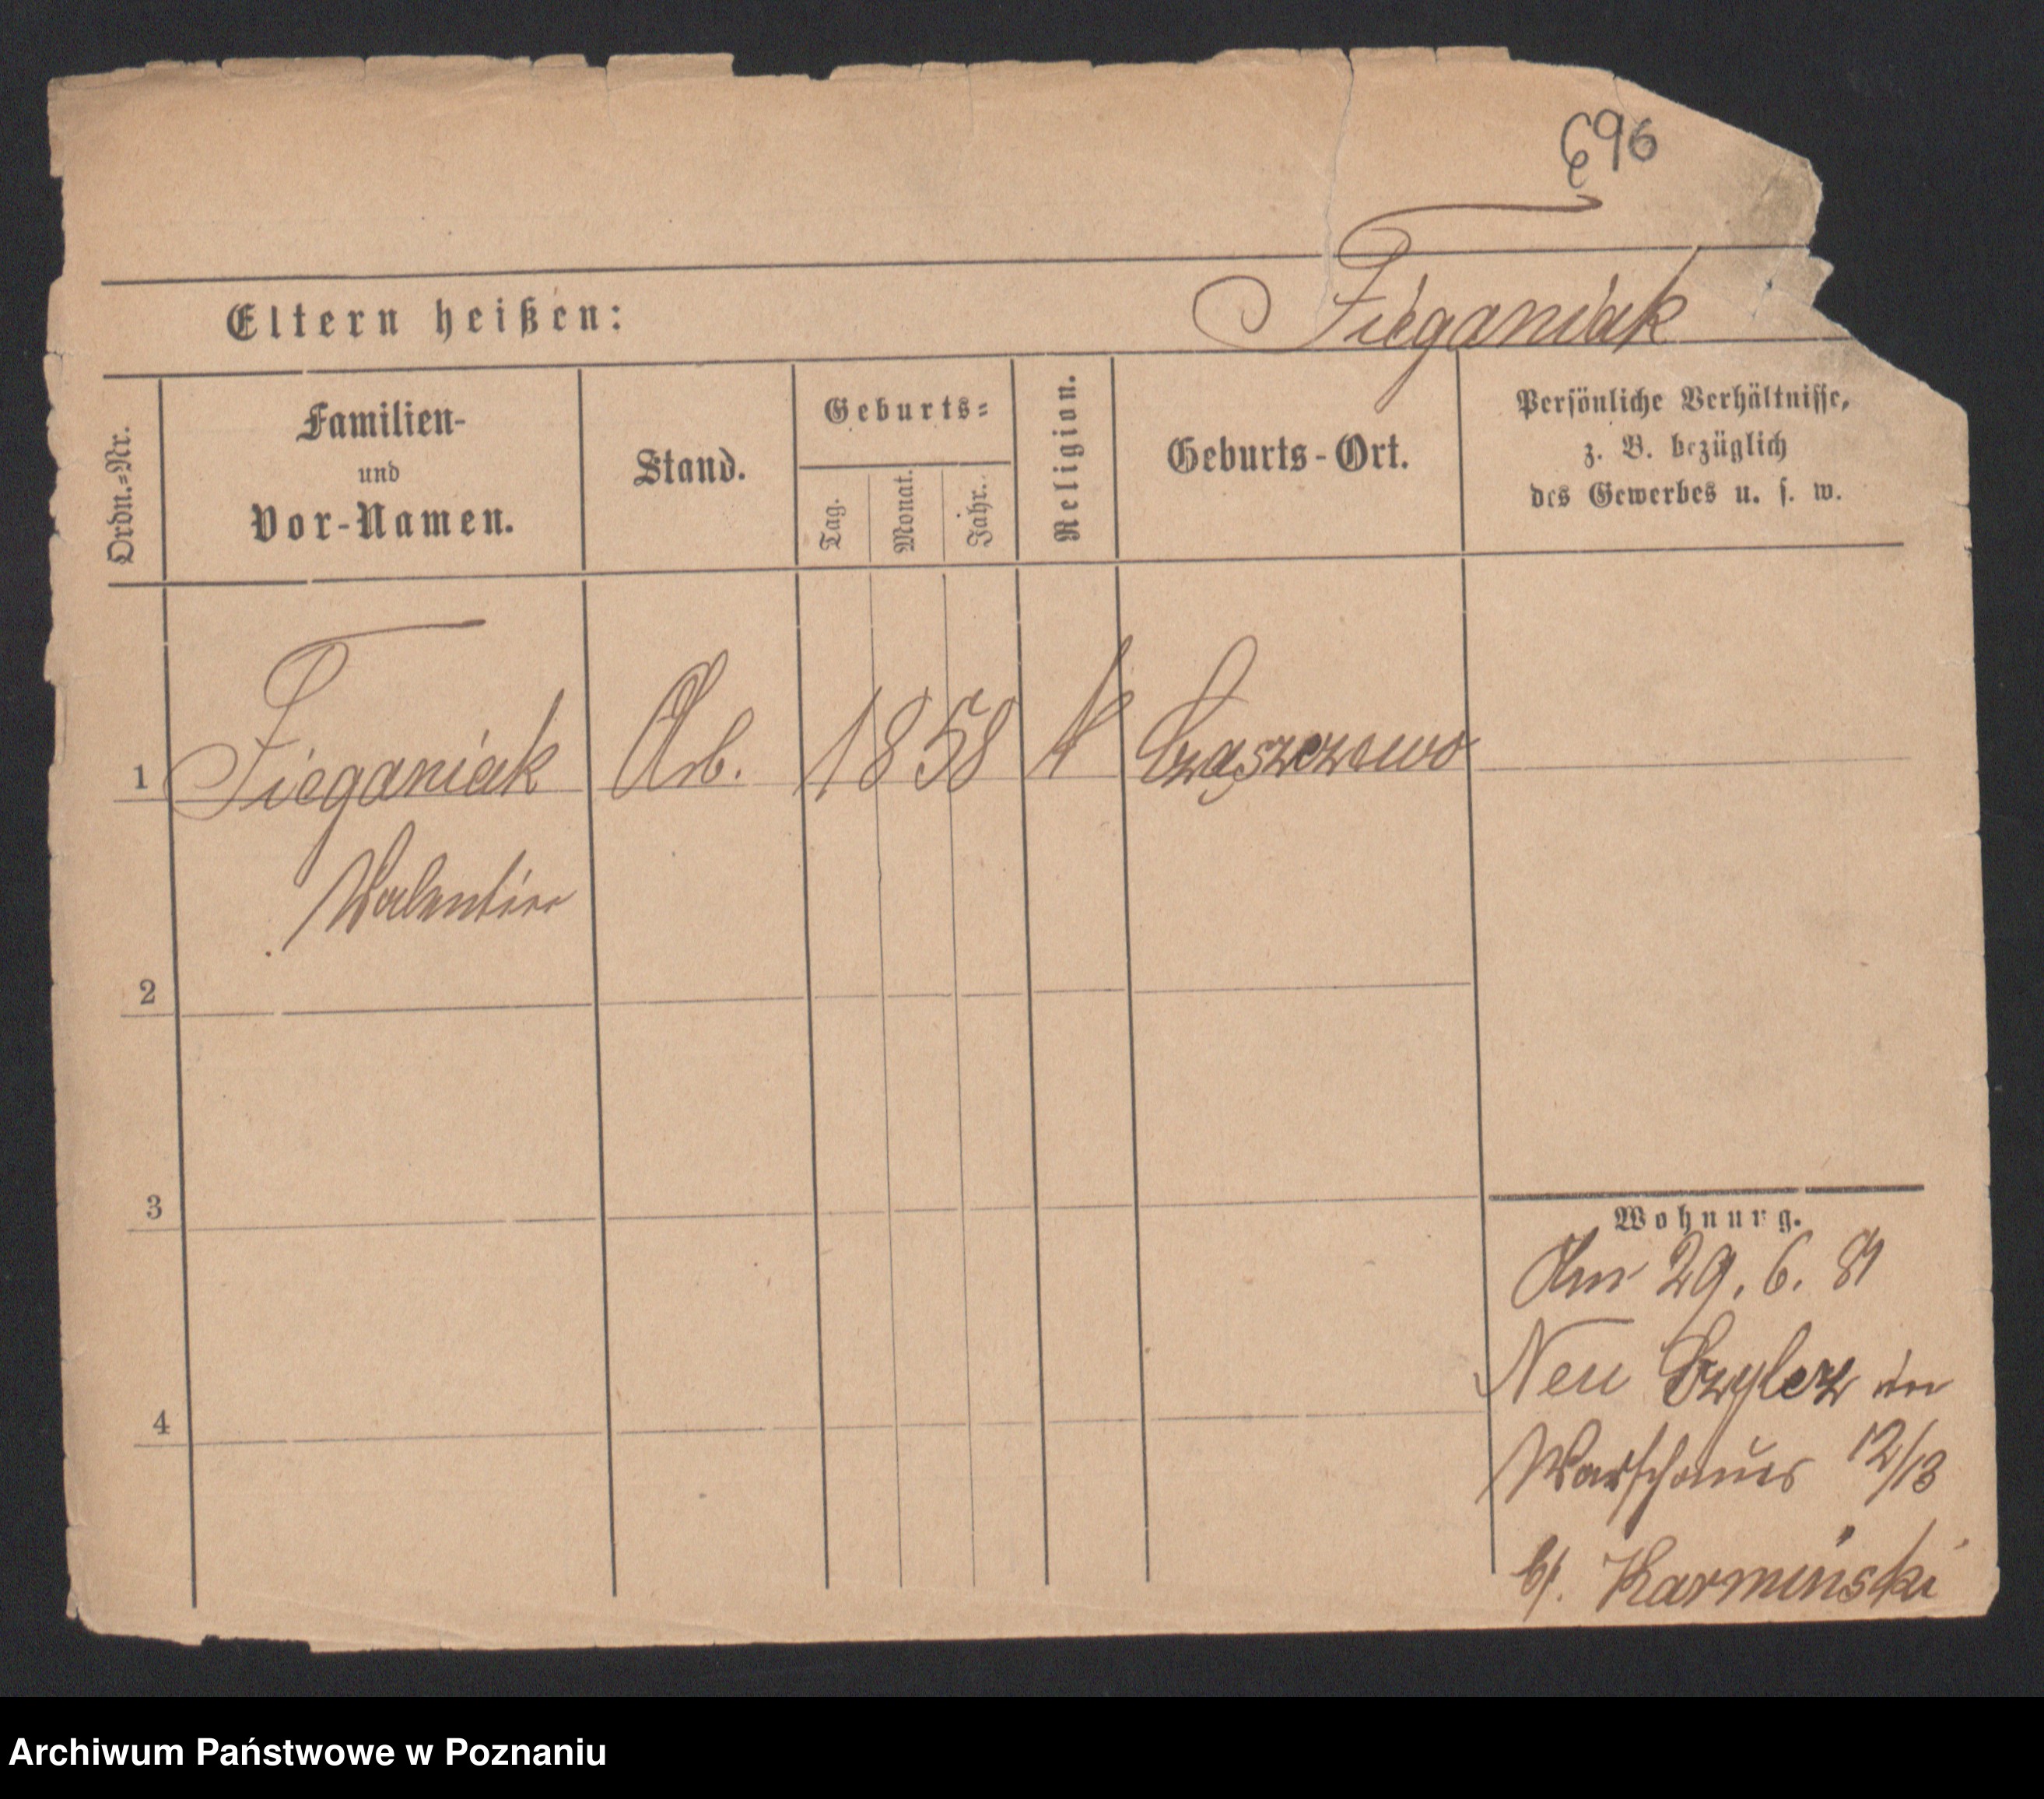 696
Eltern heißen:
Fieganiak
Ordn.=Nr.
Familien-
und
Vor-Namen.
Stand.
Geburts=
Tag.
Monat.
Jahr.
Religion.
Geburts-Ort.
Persönliche Verhältnisse,
z. B. bezüglich
des Gewerbes u. s. w.
1 Fieganiak Arb. 1858 k
Valentin
2
3
4
Wohnung.
Am 29. 6.
Neu in
Warschauer 12/13
b/. Karminski
Archiwum Państwowe w Poznaniu